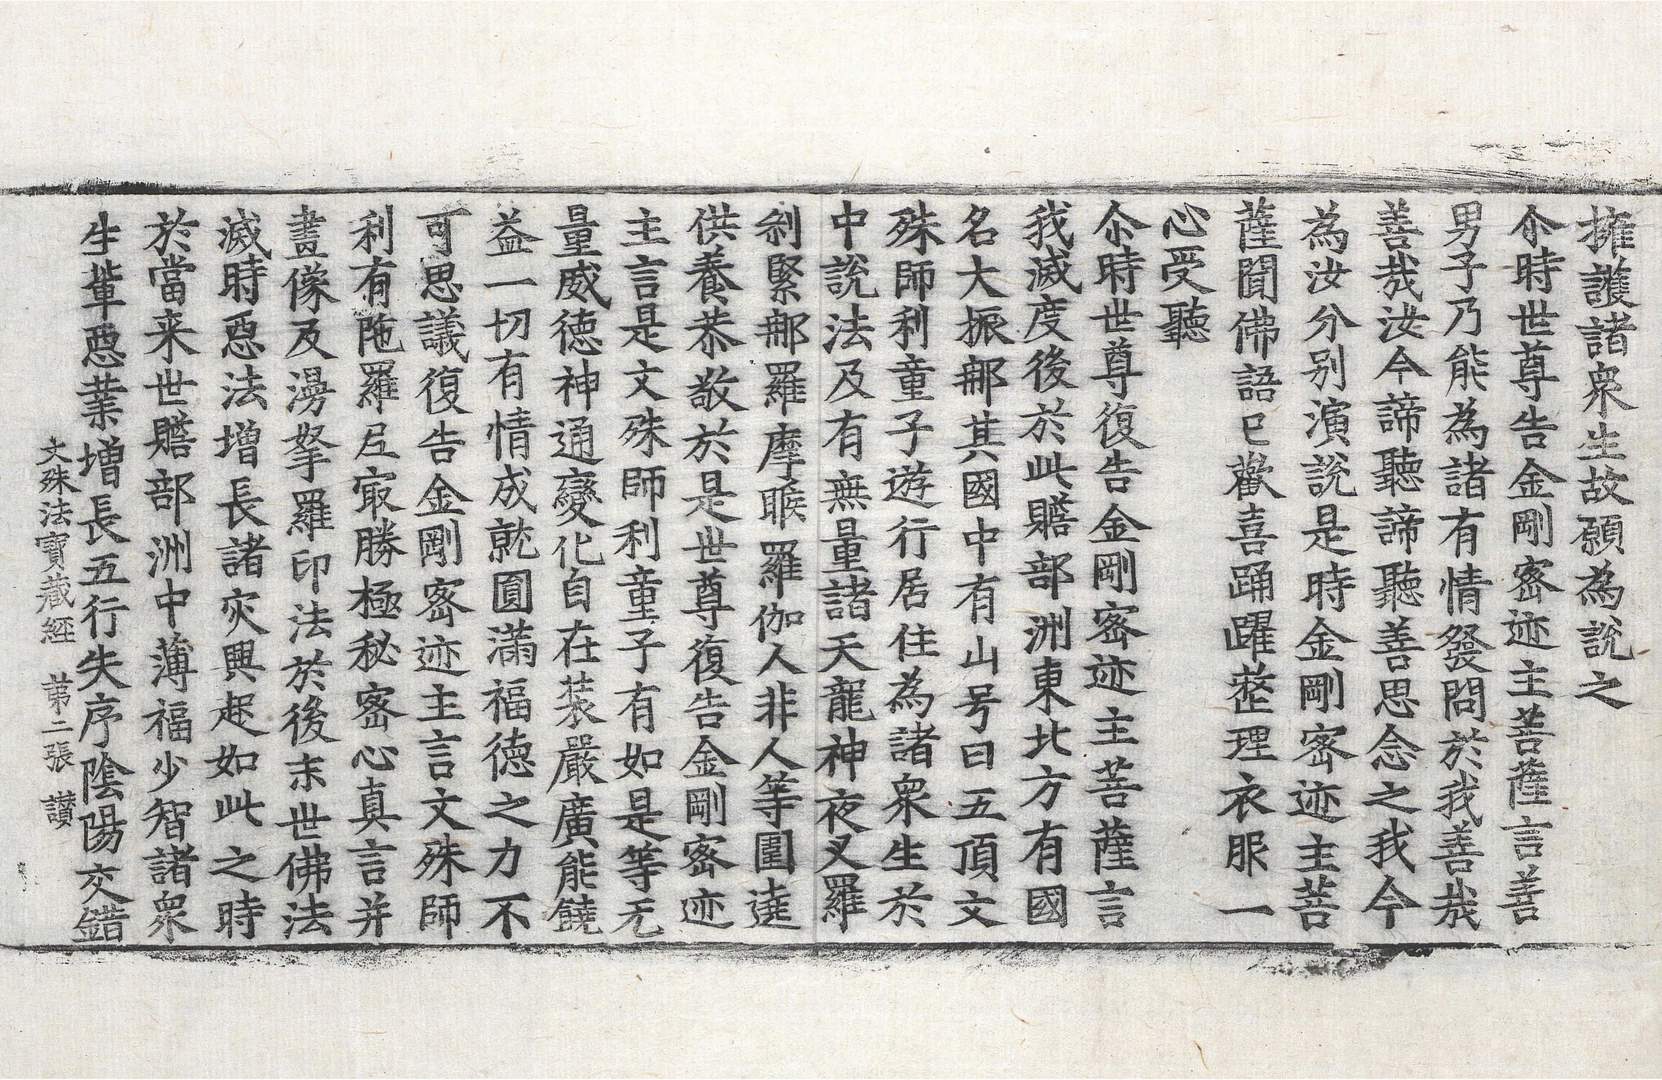 擁護諸衆生故願為說之
尒時世尊告金剛密迹主菩薩言善
男子乃能為諸有情發問於我善哉
善哉汝今諦聽諦聽善思念之我今
為汝分別演說是時金剛密迹主菩
薩聞佛語已歡喜踊躍整理衣服一
心受聽
尒時世尊復告金剛密迹主菩薩言
我滅度後於此贍部洲東北方有國
名大振那其國中有山号曰五頂文
殊師利童子遊行居住為諸衆生於
中說法及有無量諸天龍神夜叉羅
刹緊那羅摩睺羅伽人非人等圍遶
供養恭敬於是世尊復告金剛密迹
主言是文殊師利童子有如是等无
量威德神通變化自在莊嚴廣能饒
益一切有情成就圓滿福德之力不
可思議復告金剛密迹主言文殊師
利有陁羅尼㝡勝極秘密心真言并
畫像及漫拏羅印法於後末世佛法
滅時惡法增長諸灾興起如此之時
於當来世贍部洲中薄福少智諸衆
生輩惡業增長五行失序陰陽交錯
文殊法寶藏經　第二張　讃